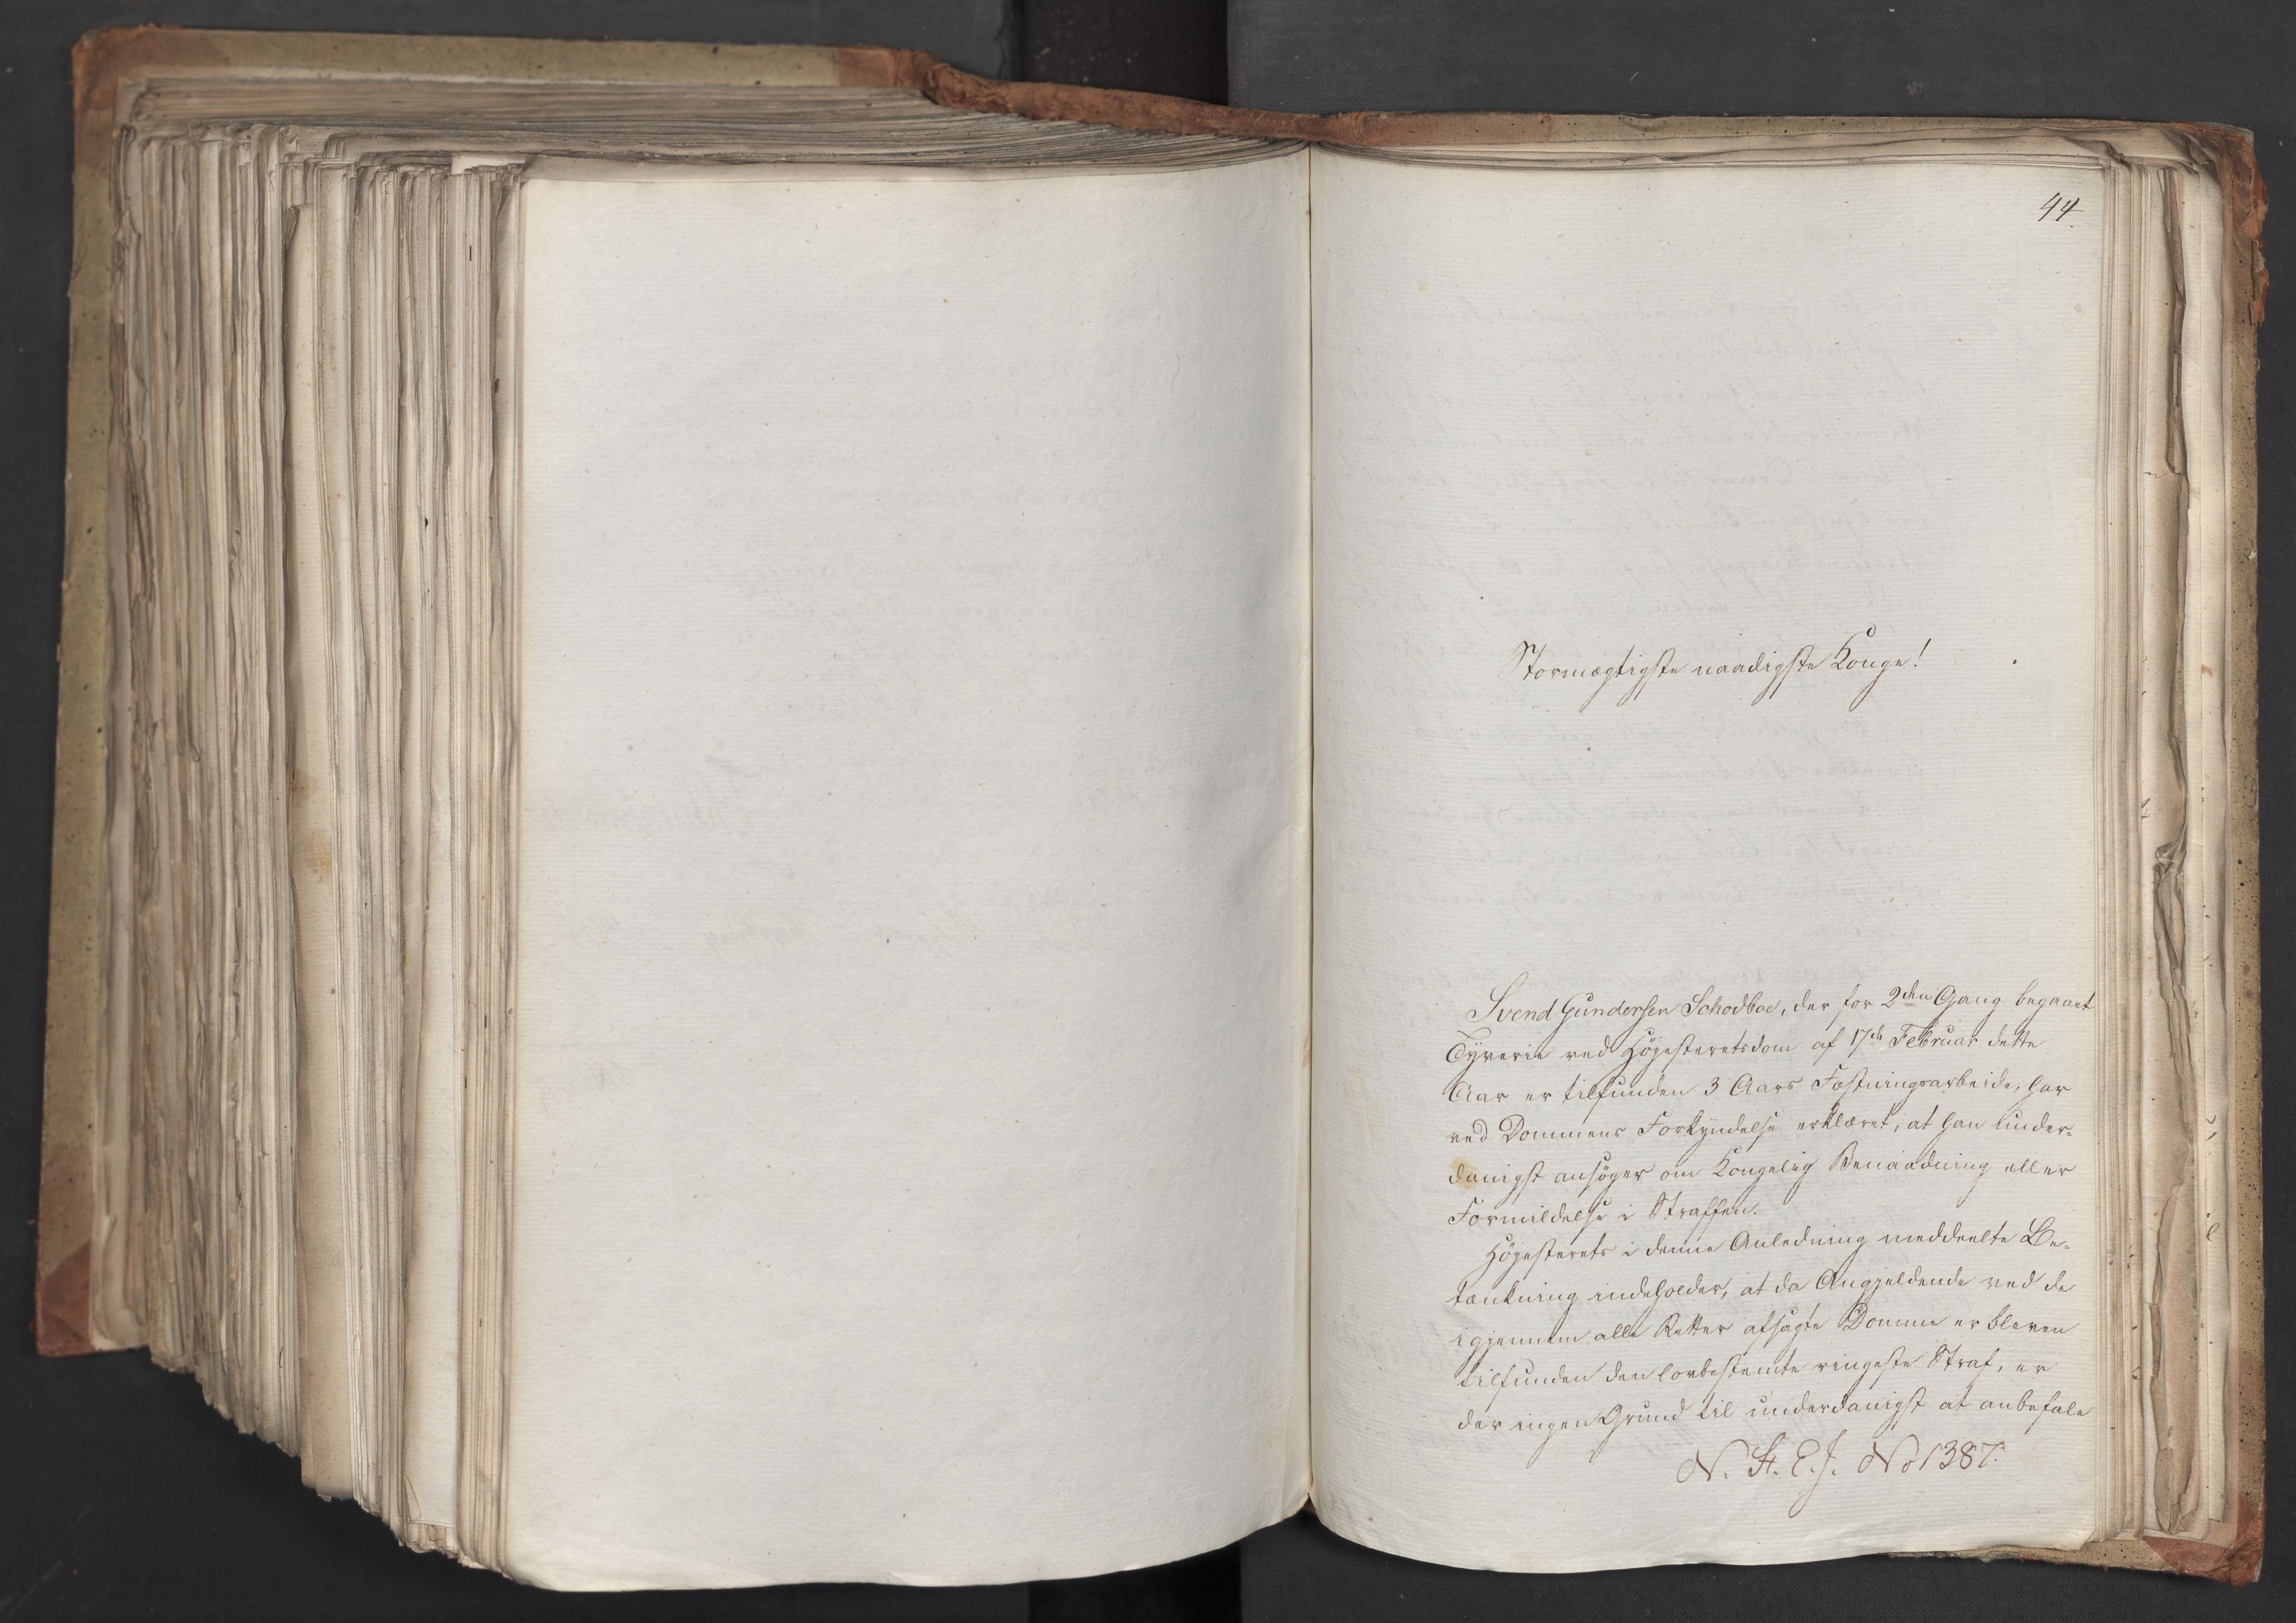 44.
Stormægtigste naadigste Konge!
Svend Gundersen Schodboe, der for 2den Gang begaaet
Tyverie ved Høiesteretsdom af 17de Februar dette
Aar er tilfunden 3 Aars Fæstningsarbeide, har
ved Dommens Forkyndelse erklæret, at han under-
danigst ansøger om Kongelig Benaadning eller
Formildelse i Straffen.
Høiesterets i denne Anledning meddeelte Be-
tænkning indeholder, at da Angjeldende ved de
igjennem alle Retter afsagte Domme er bleven
tilfunden den lovbestemte ringeste Straf, er
der ingen Grund til underdanigst at anbefale
N. St. E. J. No 1387.